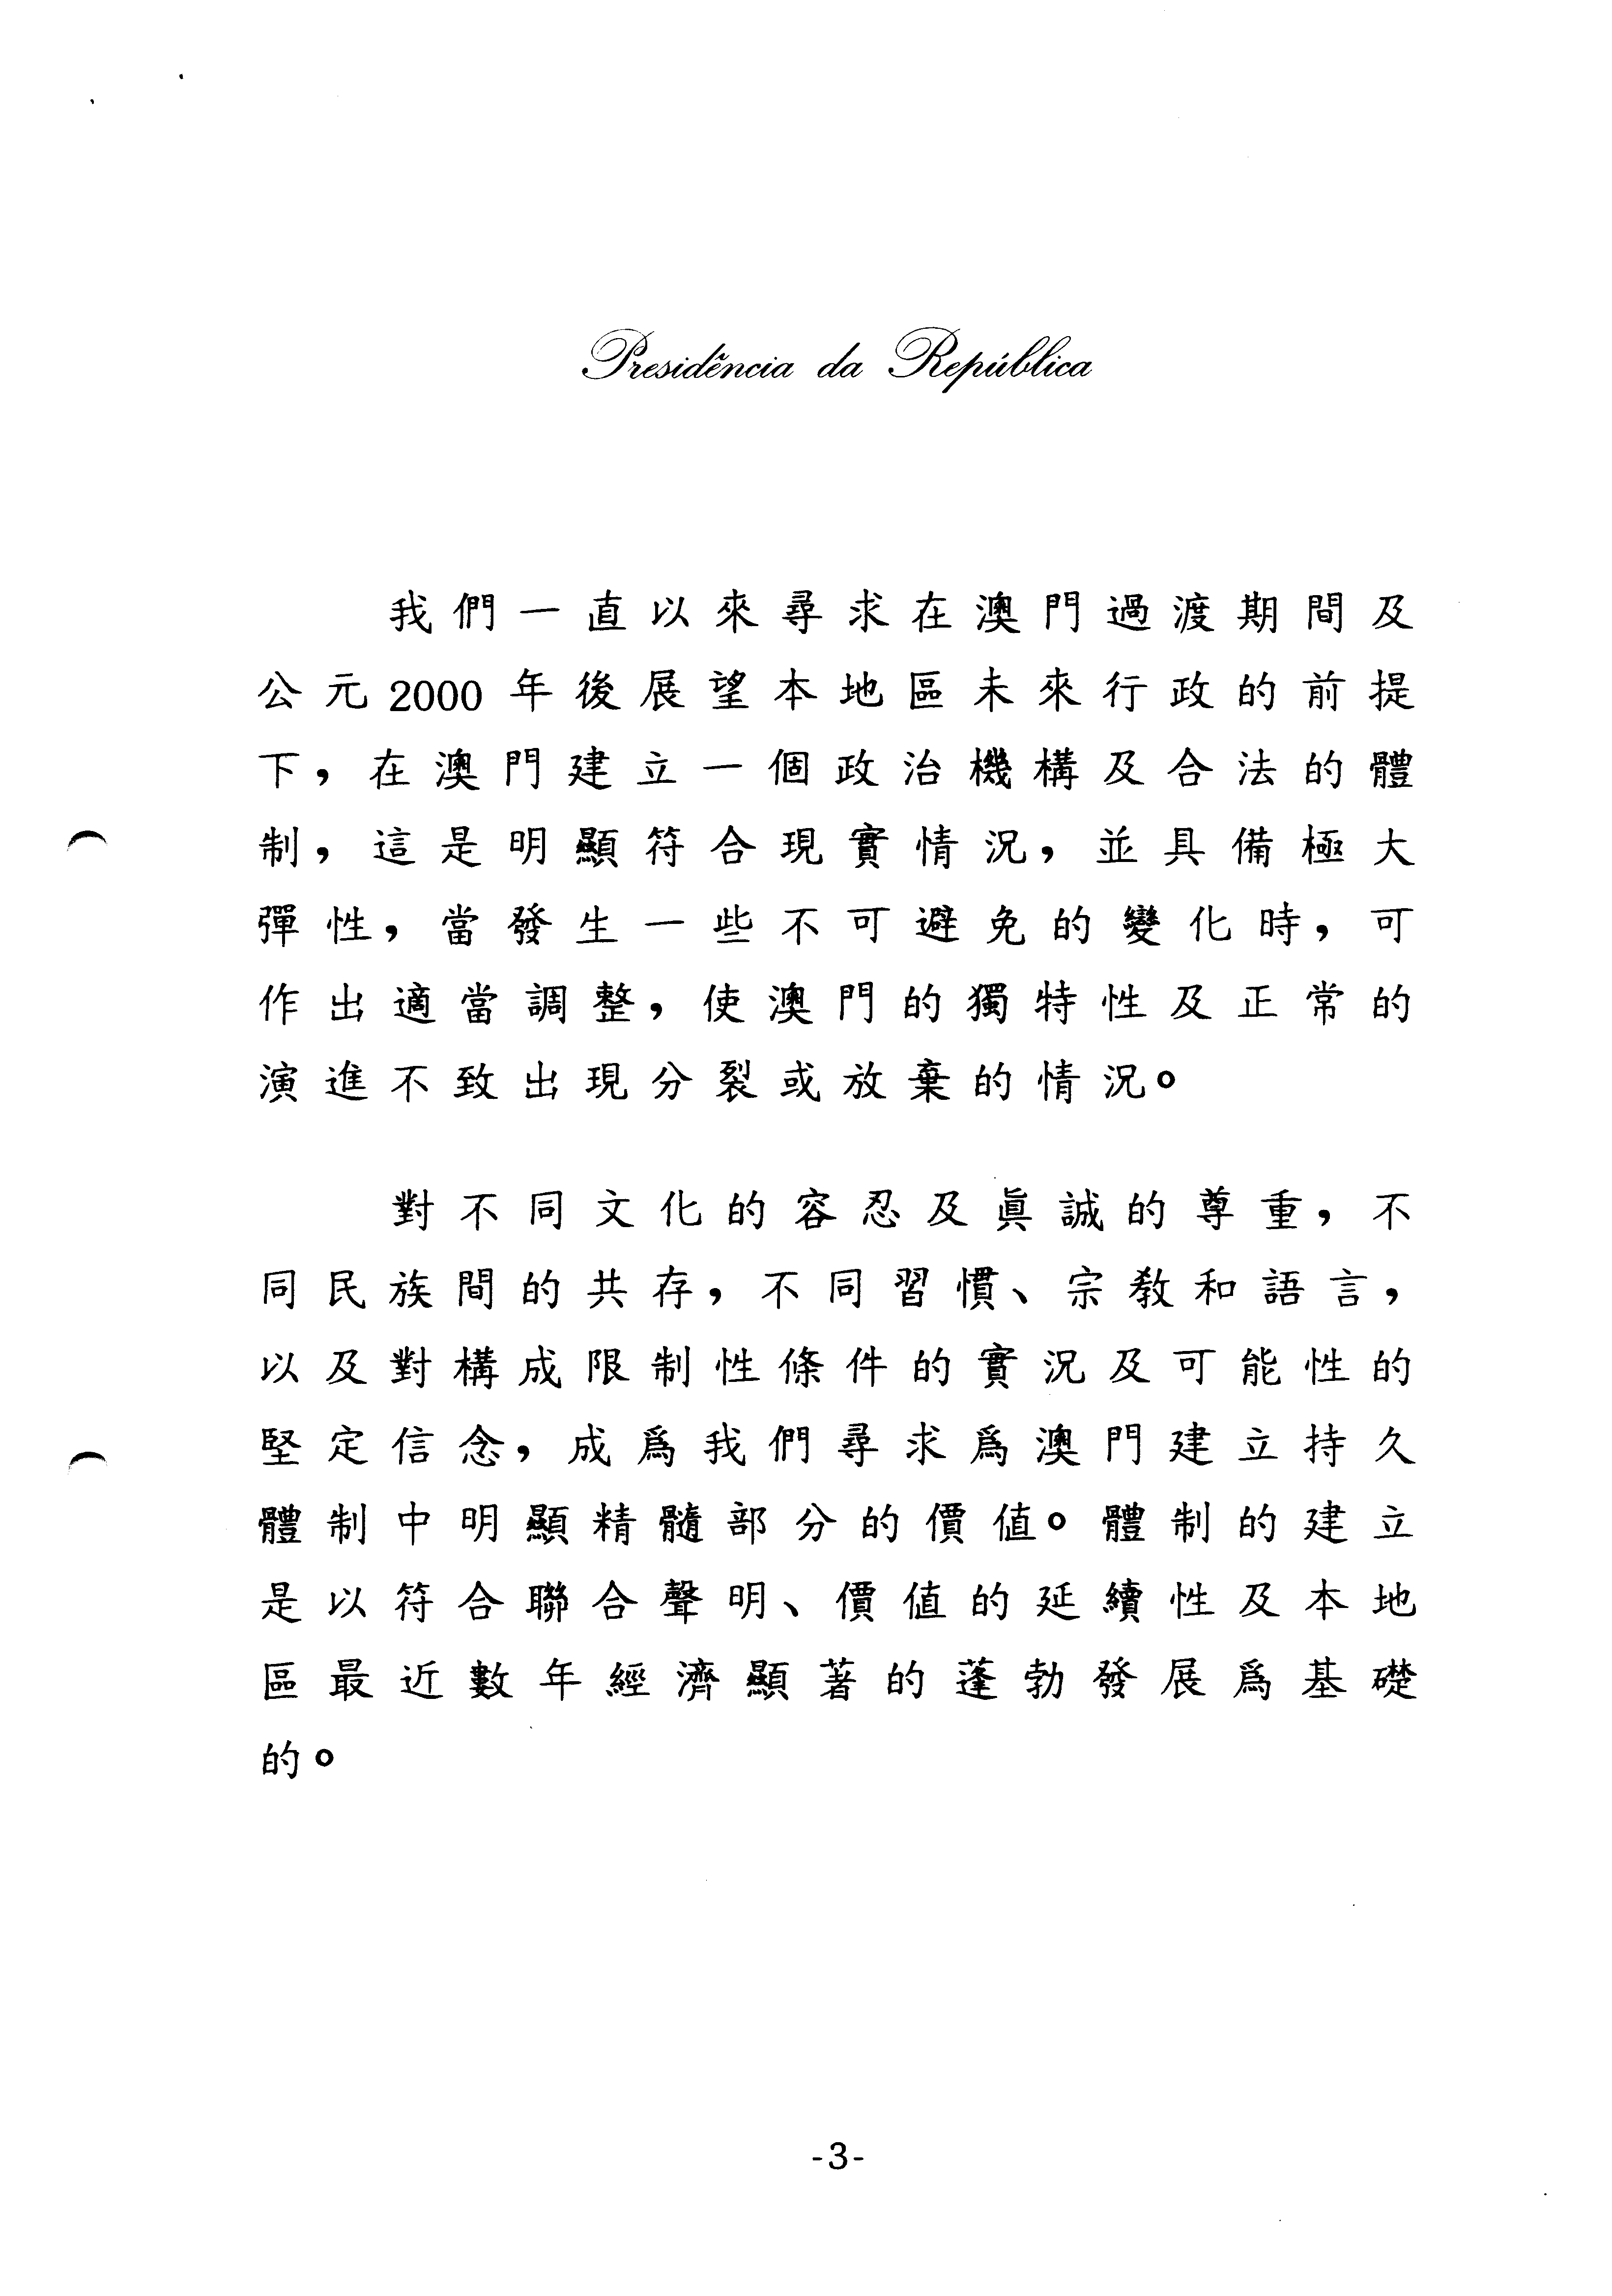 Presidência da República
我們一直以來尋求在澳門過渡期間及
公元2000年後展望本地區未來行政的前提
下，在澳門建立一個政治機構及合法的體
制，這是明顯符合現實情況，並具備極大
彈性，當發生一些不可避免的變化時，可
作出適當調整，使澳門的獨特性及正常的
演進不致出現分裂或放棄的情況。
對不同文化的容忍及眞誠的尊重，不
同民族間的共存，不同習慣、宗教和語言，
以及對構成限制性條件的實況及可能性的
堅定信念，成爲我們尋求爲澳門建立持久
體制中明顯精髓部分的價值。體制的建立
是以符合聯合聲明、價值的延續性及本地
區最近數年經濟顯著的蓬勃發展爲基礎
的。
-3-